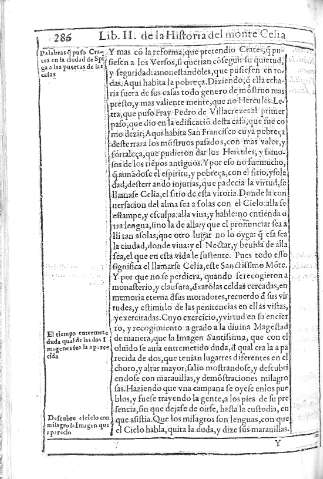 286
Lib. II. de la Historia del monte Celia
Palabras q̃ puso Cra-
tes en la ciudad de
a las puertas de las
Y mas cõ la reforma, que pretendio Crates, q̃ pu-
siesen a los Versos, si querian cõseguir su quietud,
y seguridad: amonestandoles, que pusiesen en to-
das. Aqui habita la pobreza. Diziendo, q̃ ella echa-
ria fuera de sus casas todo genero de mõstro mas
presto, y mas valiente mente, que no Hercules. Le-
tra, que puso Fray Pedro de Villacreces al primer
paso, que dio en la edificaciõ desta casa, que fue co-
mo dezir; Aqui habita San Francisco cuya pobreça
desterrara los mõstruos pasados, con mas valor, y
fortaleça, que pudieron dar los Hercules, y famo-
sos de los tiẽpos antiguos. Y por eso no fue mucho,
q̃ auinẽdose el espiritu, y pobreça, con el sitio, y sole
dad, desterrando injurias, que padecia la virtud, se
llamase Celia, el sitio de esta vitoria. Donde la con
uersacion del alma sea a solas con el Cielo: alla se
estampe, y esculpa: alla viua, y hable: no entienda o
tra lengua, sino la de alla: y que el pronunciar sea a
lli tan a solas, que otro lugar no lo oyga: q̃ esa sea
la ciudad, donde viua: y el Nectar, y beuida de alla
sea, el que en esta vida le sustente. Pues todo eso
significa el llamarse Celia, este Sanctissimo Mõte.
Y por que no se perdiera, quando se recogieron a
monasterio, y clausura, dexarõ las celdas cercadas, en
memoria eterna dsus moradores, recuerdo d sus vir
tudes, y estimulo de las penitencias en ellas vistas,
y executadas. Cuyo exercicio, y virtud en su encier
ro, y recogimiento agrado a la diuina Magestad
de manera, que la Imagen Santissima, que con el
oluido se auia entremetido duda, d̃ qual era la a pa
recida de dos, que tenian lugares diferentes en el
choro, y altar mayor, salio mostrandose, y descubri
endose con marauillas, y demõstraciones milagro
sas. Haziendo que vna campana se oyese en los pue
blos, y fuese trayendo la gente, a los pies de su pre
sencia, sin que dejase de oirse, hasta la custodia, en
que asistia. Que los milagros son lenguas, con que
el Cielo habla, quita la duda, y dize sus marauillas.
El tiempo entremete
duda qual de las dos I
magenes sea la apare-
cida
Descubre el cielo con
milagros la Imagen que
a parecio
Y